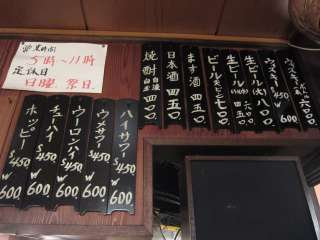 営業時間
5時〜11時
定休日
日曜.祭日
ウィスキー
生ビール(大)八〇〇
生ビール(小)
ビール大ビン七〇〇
ます酒四五〇
日本酒四五〇
焼酎 四〇〇
ハイサワー $450 W600
ウメサワー $450 W600
ウーロンハイ $450 W600
チューハイ $450 W600
ホッピー W600